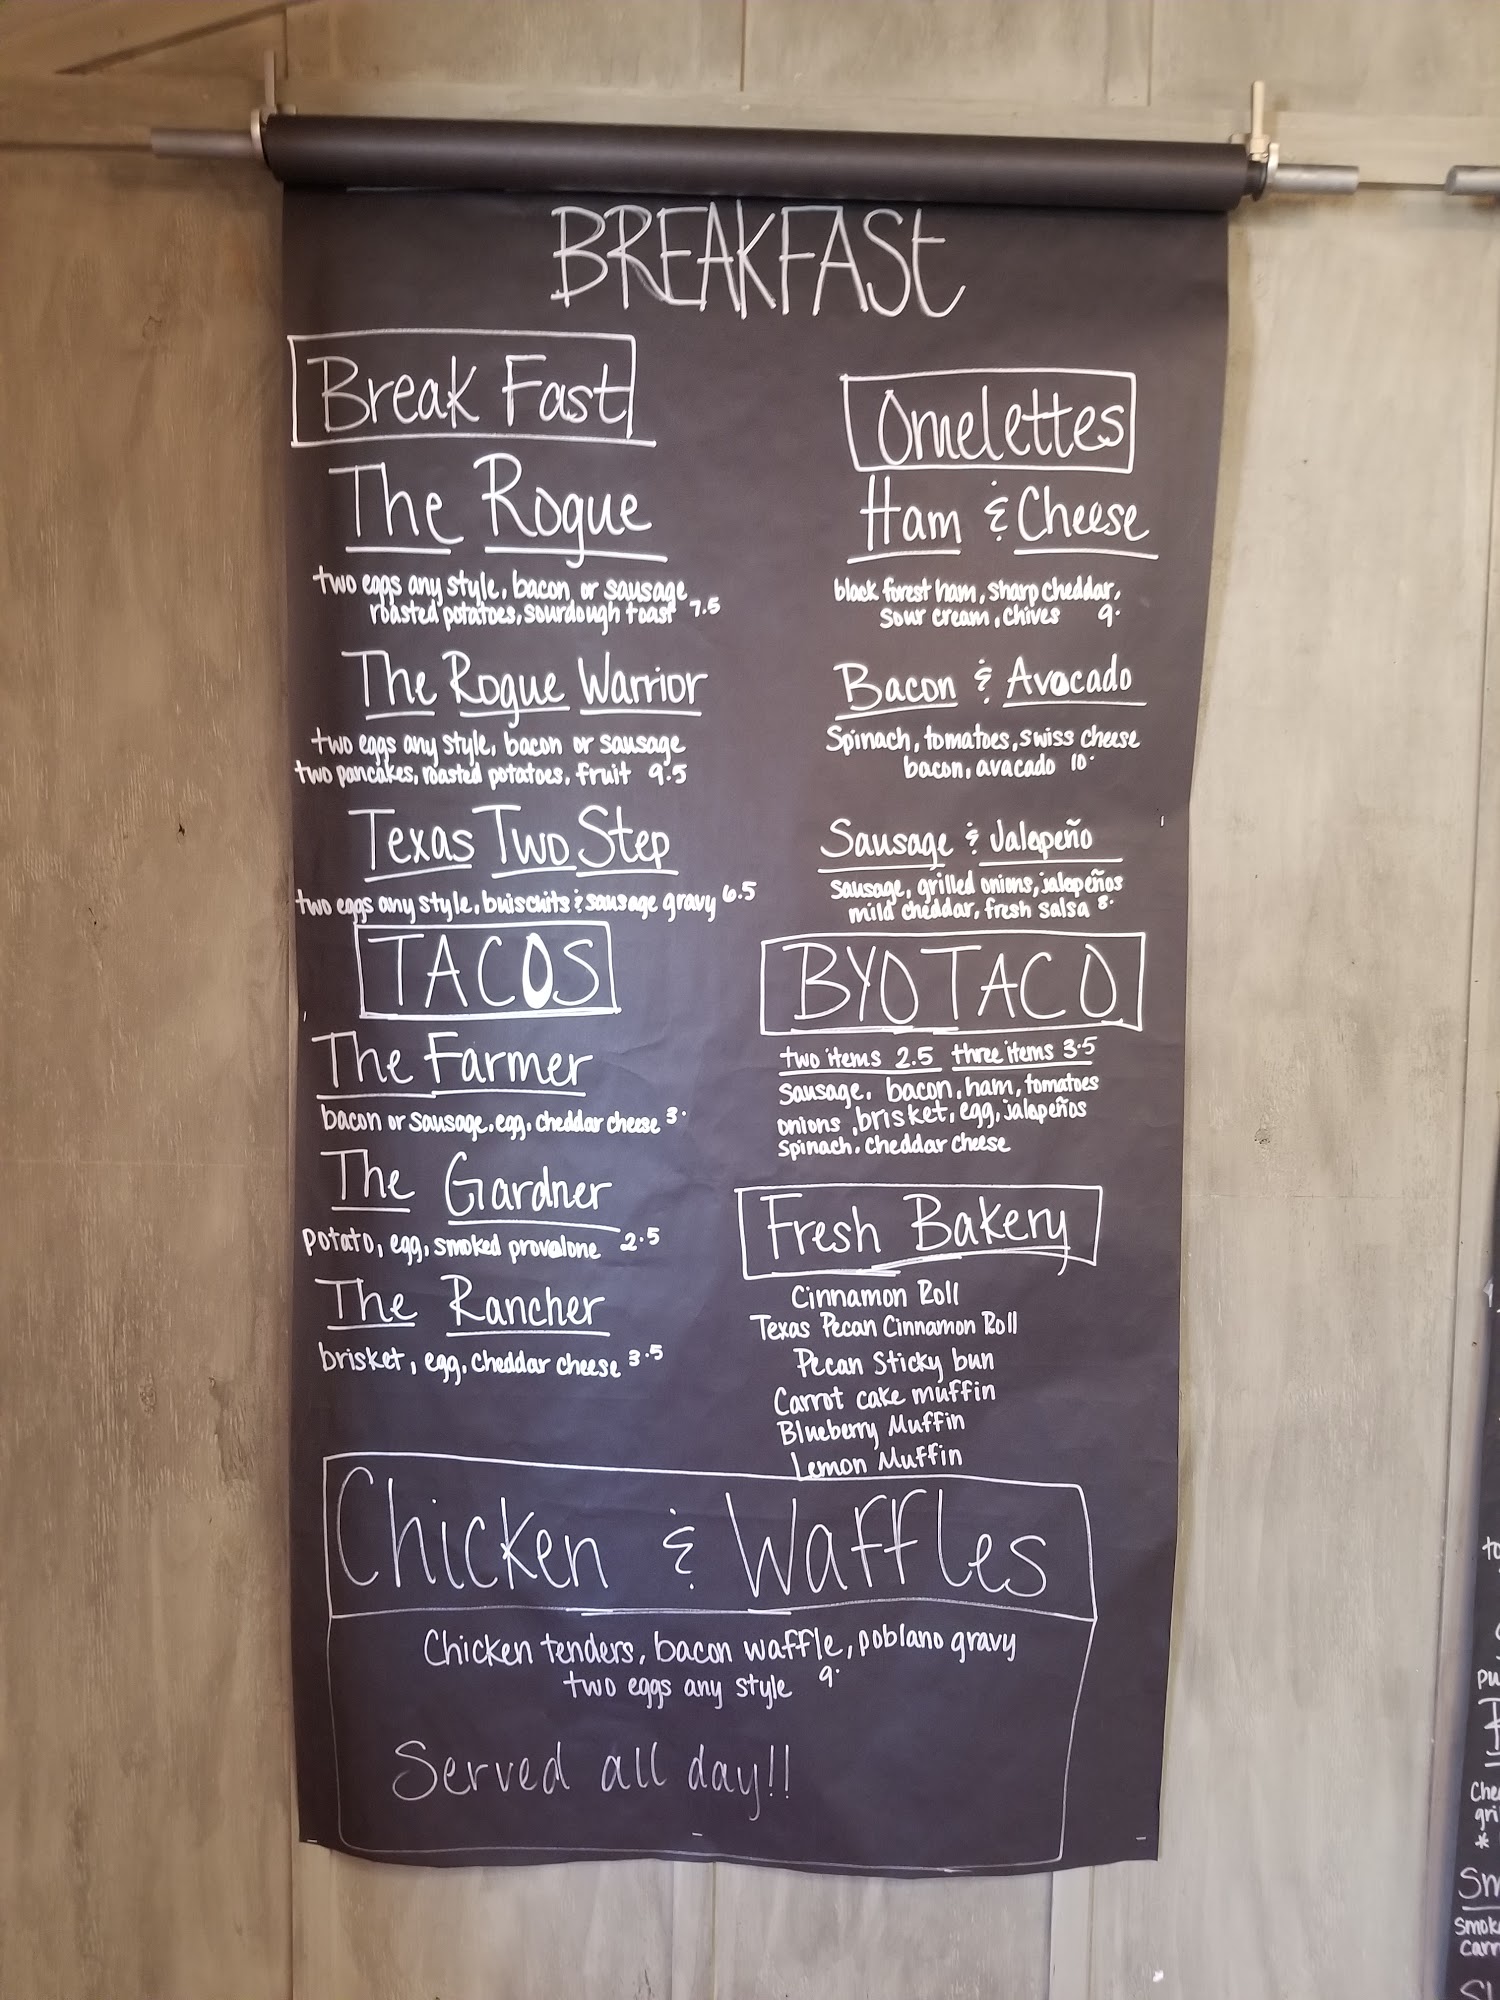 BREAKFASt
Break Fast
The Rogue
two eggs any style, bacon or sausage
roasted potatoes, sourdough toast 7.5
The Rogue Warrior
two eggs any style, bacon or sausage
two pancakes, roasted potatoes, fruit 9.5
Texas Two Step
two eggs any style, buiscuits & sausage gravy 6.5
TACOS
The Farmer
bacon or sausage, egg, cheddar cheese 3.
The Gardner
potato, egg, smoked provolone 2.5
The Rancher
brisket, egg, cheddar cheese 3.5
Omelettes
Ham & Cheese
black forest ham, sharp cheddar,
sour cream, chives 9.
Bacon & Avocado
Spinach, tomatoes, swiss cheese
bacon, avacado 10.
Sausage & Jalapeño
Sausage, grilled onions, jalapeños
mild cheddar, fresh salsa 8.
BYO TACO
two items 2.5 three items 3.5
Sausage, bacon, ham, tomatoes
onions, brisket, egg, jalapeños
Spinach, cheddar cheese
Fresh Bakery
Cinnamon Roll
Texas Pecan Cinnamon Roll
Pecan Sticky bun
Carrot cake muffin
Blueberry Muffin
Lemon Muffin
Chicken & Waffles
Chicken tenders, bacon waffle, poblano gravy
two eggs any style 9.
Served all day!!